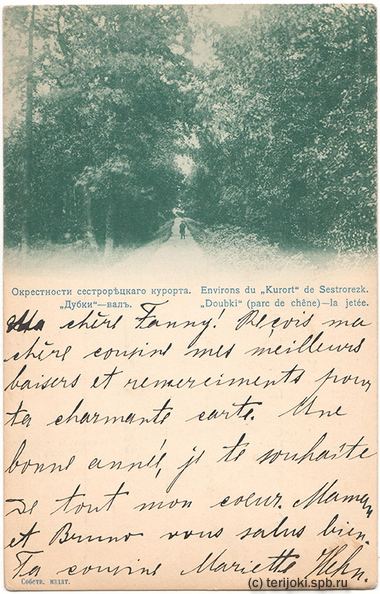 Окрестности сестрорѣцкаго курорта. Environs du „Kurort“ de Sestrorezk.
„Дубки“—валъ. „Doubki“ (parc de chêne)—la jetée.
Ma chère Fanny! Reçois ma
chère cousine mes meilleurs
baisers et remerciments pour
ta charmante carte. Une
bonne année, je te souhaite
de tout mon coeur. Maman
et Bruno vous salus bien.
Ta cousine Mariette Hehn.
Собств. издат.
(c) terijoki.spb.ru